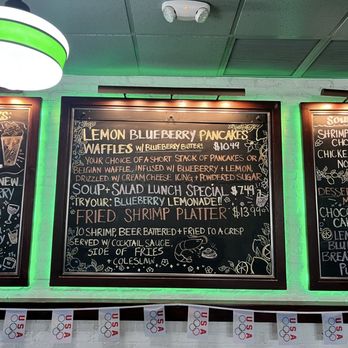 LEMON BLUEBERRY PANCAKES
WAFFLES W/ BLUEBERRY BUTTER! $10.49
YOUR CHOICE OF A SHORT STACK OF PANCAKES OR
BELGIAN WAFFLE, INFUSED W/ BLUEBERRY + LEMON,
DRIZZLED W/ CREAM CHEESE ICING + POWDERED SUGAR
SOUP + SALAD LUNCH SPECIAL $7.49
TRY OUR: BLUEBERRY LEMONADE!!
"FRIED SHRIMP PLATTER" $13.99
10 SHRIMP, BEER BATTERED + FRIED TO A CRISP
SERVED W/ COCKTAIL SAUCE,
SIDE OF FRIES
+ COLESLAW
NEW
SOUP
SHRIMP
CHO
CHICKEN
NO
DESSE
CHOCO
CA
LEM
BLUE
BREA
USA
USA
USA
USA
USA
USA
USA